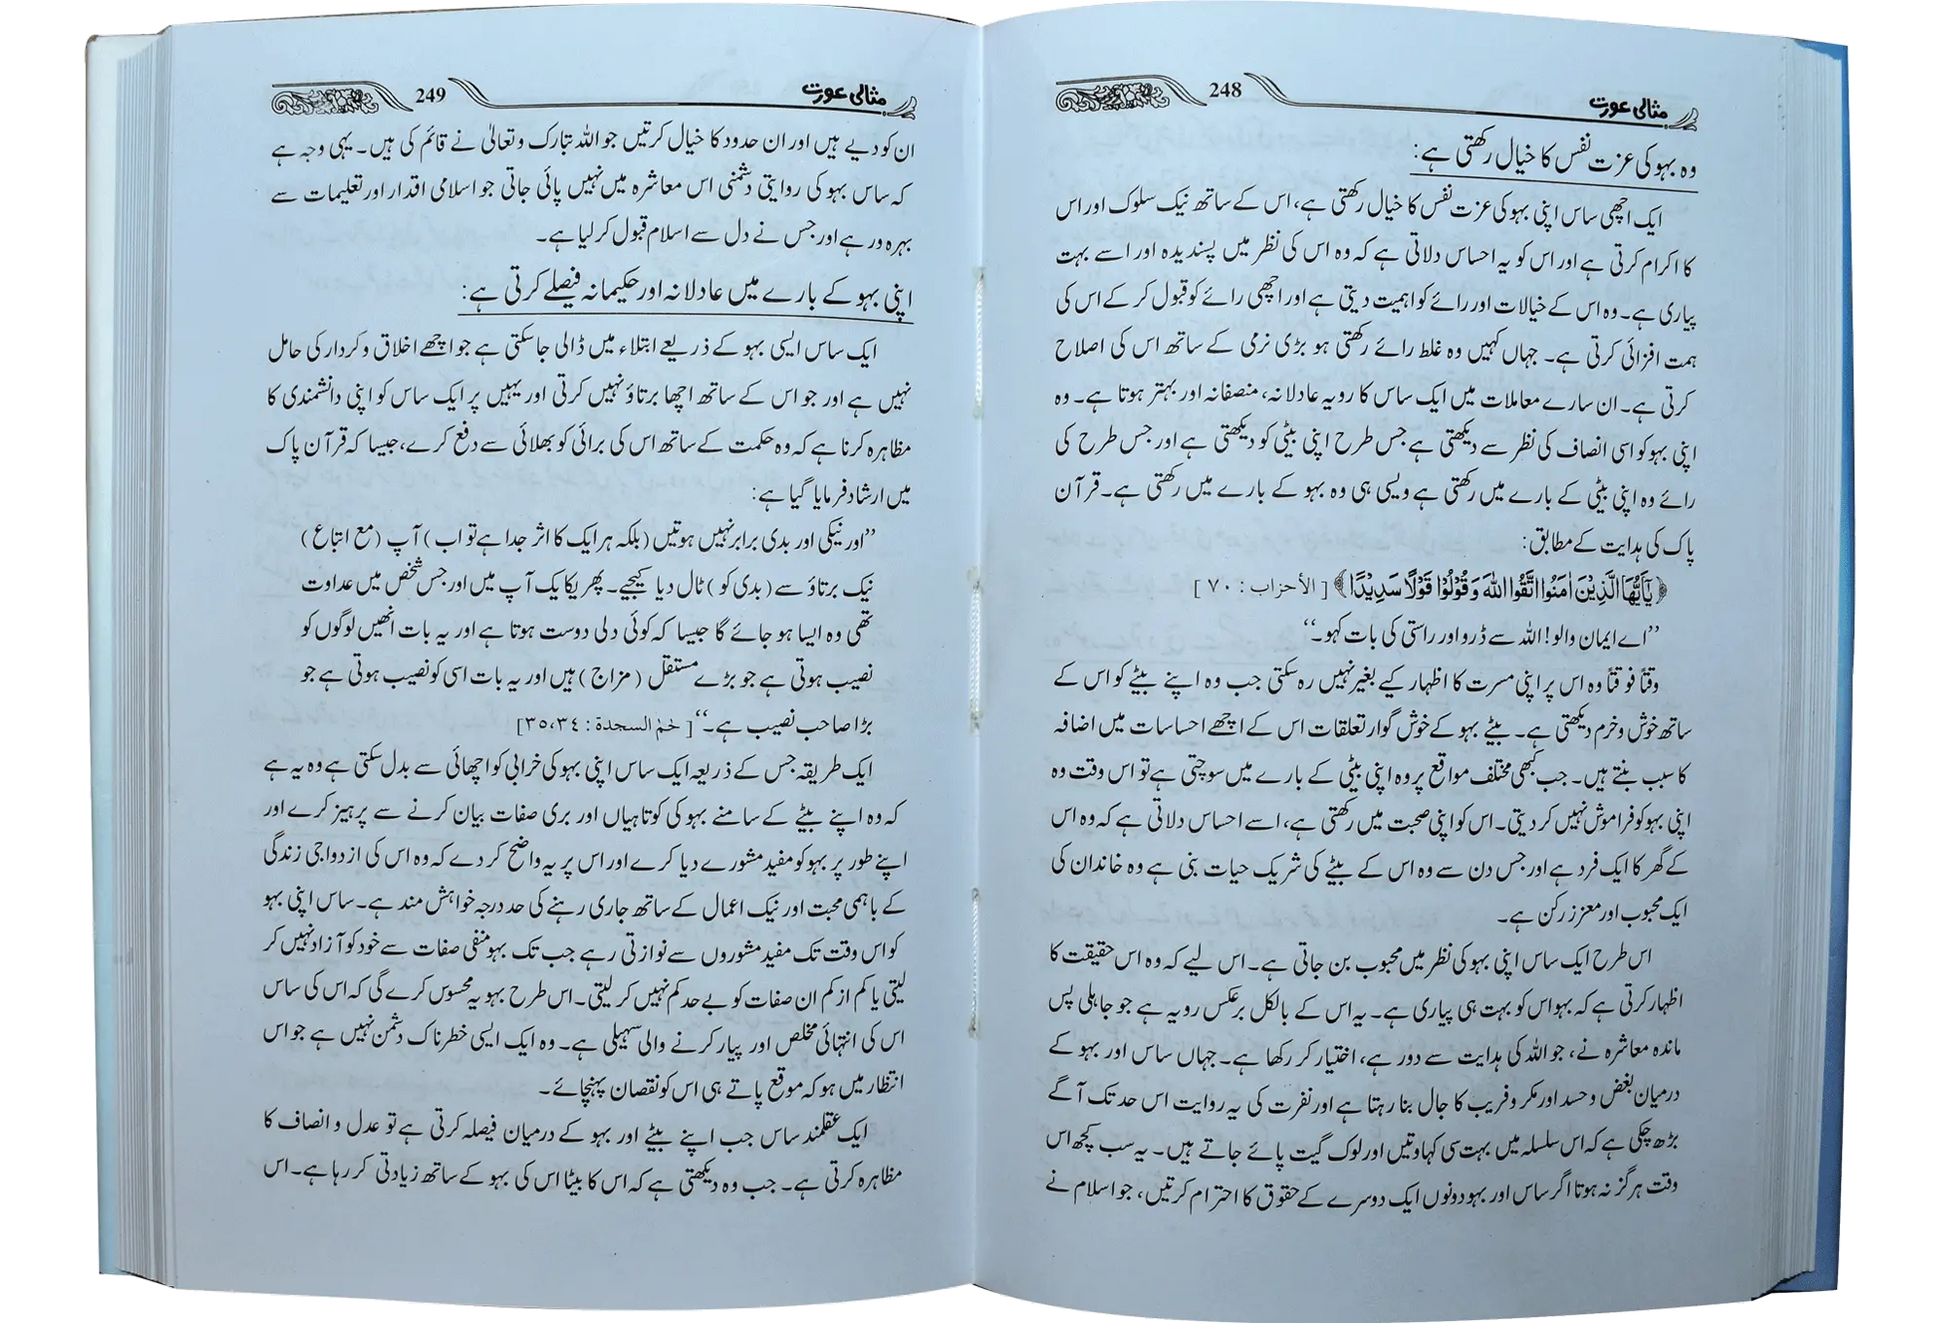 مثالی عورت 248
وہ بہو کی عزت نفس کا خیال رکھتی ہے:
ایک اچھی ساس اپنی بہو کی عزت نفس کا خیال رکھتی ہے، اس کے ساتھ نیک سلوک اور اس
کا اکرام کرتی ہے اور اس کو یہ احساس دلاتی ہے کہ وہ اس کی نظر میں پسندیدہ اور اسے بہت
پیاری ہے۔ وہ اس کے خیالات اور رائے کو اہمیت دیتی ہے اور اچھی رائے کو قبول کر کے اس کی
ہمت افزائی کرتی ہے۔ جہاں کہیں وہ غلط رائے رکھتی ہو بڑی نرمی کے ساتھ اس کی اصلاح
کرتی ہے۔ ان سارے معاملات میں ایک ساس کا رویہ عادلانہ، منصفانہ اور بہتر ہوتا ہے۔ وہ
اپنی بہو کو اسی انصاف کی نظر سے دیکھتی ہے جس طرح اپنی بیٹی کو دیکھتی ہے اور جس طرح کی
رائے وہ اپنی بیٹی کے بارے میں رکھتی ہے ویسی ہی وہ بہو کے بارے میں رکھتی ہے۔ قرآن
پاک کی ہدایت کے مطابق:
﴿يٰٓاَيُّهَا الَّذِيْنَ اٰمَنُوا اتَّقُوا اللّٰهَ وَقُوْلُوْا قَوْلًا سَدِيْدًا﴾ [الأحزاب : ٧٠]
’’اے ایمان والو! اللہ سے ڈرو اور راستی کی بات کہو۔‘‘
وقتاً فوقتاً وہ اس پر اپنی مسرت کا اظہار کیے بغیر نہیں رہ سکتی جب وہ اپنے بیٹے کو اس کے
ساتھ خوش و خرم دیکھتی ہے۔ بیٹے بہو کے خوش گوار تعلقات اس کے اچھے احساسات میں اضافہ
کا سبب بنتے ہیں۔ جب کبھی مختلف مواقع پر وہ اپنی بیٹی کے بارے میں سوچتی ہے تو اس وقت وہ
اپنی بہو کو فراموش نہیں کر دیتی۔ اس کو اپنی صحبت میں رکھتی ہے، اسے احساس دلاتی ہے کہ وہ اس
کے گھر کا ایک فرد ہے اور جس دن سے وہ اس کے بیٹے کی شریک حیات بنی ہے وہ خاندان کی
ایک محبوب اور معزز رکن ہے۔
اس طرح ایک ساس اپنی بہو کی نظر میں محبوب بن جاتی ہے۔ اس لیے کہ وہ اس حقیقت کا
اظہار کرتی ہے کہ بہو اس کو بہت ہی پیاری ہے۔ یہ اس کے بالکل برعکس رویہ ہے جو جاہلی پس
ماندہ معاشرہ نے، جو اللہ کی ہدایت سے دور ہے، اختیار کر رکھا ہے۔ جہاں ساس اور بہو کے
درمیان بغض و حسد اور مکر و فریب کا جال بنا رہتا ہے اور نفرت کی یہ روایت اس حد تک آگے
بڑھ چکی ہے کہ اس سلسلہ میں بہت سی کہاوتیں اور لوک گیت پائے جاتے ہیں۔ یہ سب کچھ اس
وقت ہرگز نہ ہوتا اگر ساس اور بہو دونوں ایک دوسرے کے حقوق کا احترام کرتیں، جو اسلام نے
مثالی عورت 249
ان کو دیے ہیں اور ان حدود کا خیال کرتیں جو اللہ تبارک و تعالیٰ نے قائم کی ہیں۔ یہی وجہ ہے
کہ ساس بہو کی روایتی دشمنی اس معاشرہ میں نہیں پائی جاتی جو اسلامی اقدار اور تعلیمات سے
بہرہ ور ہے اور جس نے دل سے اسلام قبول کر لیا ہے۔
اپنی بہو کے بارے میں عادلانہ اور حکیمانہ فیصلے کرتی ہے:
ایک ساس ایسی بہو کے ذریعے ابتلاء میں ڈالی جا سکتی ہے جو اچھے اخلاق و کردار کی حامل
نہیں ہے اور جو اس کے ساتھ اچھا برتاؤ نہیں کرتی اور یہیں پر ایک ساس کو اپنی دانشمندی کا
مظاہرہ کرنا ہے کہ وہ حکمت کے ساتھ اس کی برائی کو بھلائی سے دفع کرے، جیسا کہ قرآن پاک
میں ارشاد فرمایا گیا ہے:
’’اور نیکی اور بدی برابر نہیں ہوتیں (بلکہ ہر ایک کا اثر جدا ہے تو اب) آپ (مع اتباع)
نیک برتاؤ سے (بدی کو) ٹال دیا کیجیے۔ پھر یکایک آپ میں اور جس شخص میں عداوت
تھی وہ ایسا ہو جائے گا جیسا کہ کوئی دلی دوست ہوتا ہے اور یہ بات انھیں لوگوں کو
نصیب ہوتی ہے جو بڑے مستقل (مزاج) ہیں اور یہ بات اسی کو نصیب ہوتی ہے جو
بڑا صاحب نصیب ہے۔‘‘ [حٰمٓ السجدة : ٣٥،٣٤]
ایک طریقہ جس کے ذریعہ ایک ساس اپنی بہو کی خرابی کو اچھائی سے بدل سکتی ہے وہ یہ ہے
کہ وہ اپنے بیٹے کے سامنے بہو کی کوتاہیاں اور بری صفات بیان کرنے سے پرہیز کرے اور
اپنے طور پر بہو کو مفید مشورے دیا کرے اور اس پر یہ واضح کر دے کہ وہ اس کی ازدواجی زندگی
کے باہمی محبت اور نیک اعمال کے ساتھ جاری رہنے کی حد درجہ خواہش مند ہے۔ ساس اپنی بہو
کو اس وقت تک مفید مشوروں سے نوازتی رہے جب تک بہو منفی صفات سے خود کو آزاد نہیں کر
لیتی یا کم از کم ان صفات کو بے حد کم نہیں کر لیتی۔ اس طرح بہو یہ محسوس کرے گی کہ اس کی ساس
اس کی انتہائی مخلص اور پیار کرنے والی سہیلی ہے۔ وہ ایک ایسی خطرناک دشمن نہیں ہے جو اس
انتظار میں ہو کہ موقع پاتے ہی اس کو نقصان پہنچائے۔
ایک عقلمند ساس جب اپنے بیٹے اور بہو کے درمیان فیصلہ کرتی ہے تو عدل و انصاف کا
مظاہرہ کرتی ہے۔ جب وہ دیکھتی ہے کہ اس کا بیٹا اس کی بہو کے ساتھ زیادتی کر رہا ہے۔ اس